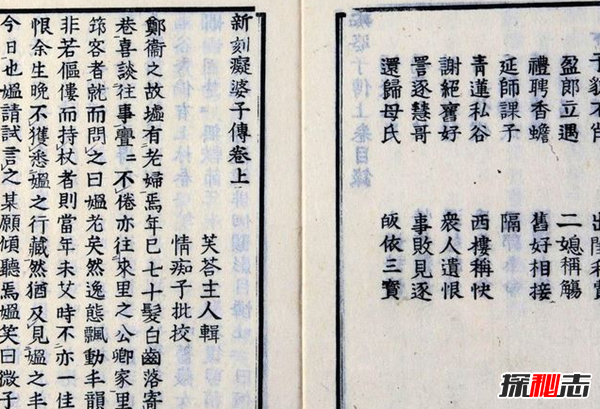 盈郎立遇　二媳稱觴
禮聘香蟾　舊好相接
延師課子　隔
青蓮私谷　西樓稱快
謝絕舊好　眾人遺恨
詈逐慧哥　事敗見逐
還歸母氏　皈依三寶
新刻癡婆子傳卷上
芙蓉主人輯
情痴子批校
鄭衛之故墟有老婦焉年已七十髮白齒落寄
巷喜談往事亹亹不倦亦往來里之公卿家里
筇客者就而問之曰媼老矣然逸態飄動丰韻
非若傴僂而持杖者則當年未艾時不亦一佳
恨余生晚不獲悉媼之行藏然猶及見媼之丰
今日也媼請試言之某願傾聽焉媼笑曰微子
探秘志